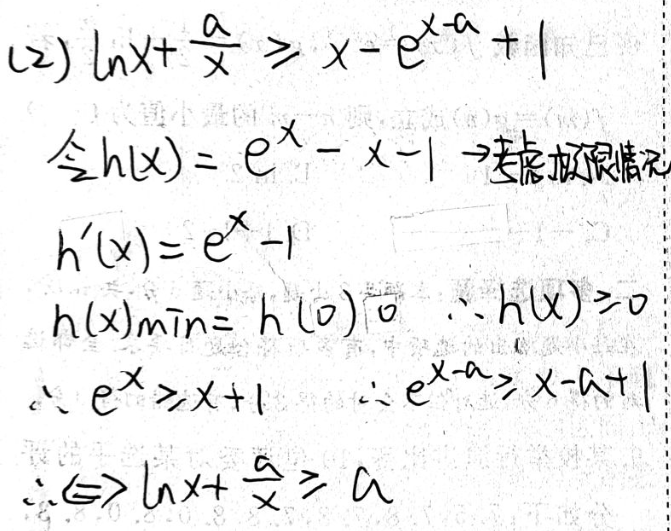 (2) lnx + a/x ≥ x - e^(x-a) + 1
令h(x) = e^x - x - 1 → 考虑极限情况
h'(x) = e^x - 1
h(x)min = h(0) 0 ∴ h(x) ≥ 0
∴ e^x ≥ x+1 ∴ e^(x-a) ≥ x-a+1
∴ ⇔ lnx + a/x ≥ a